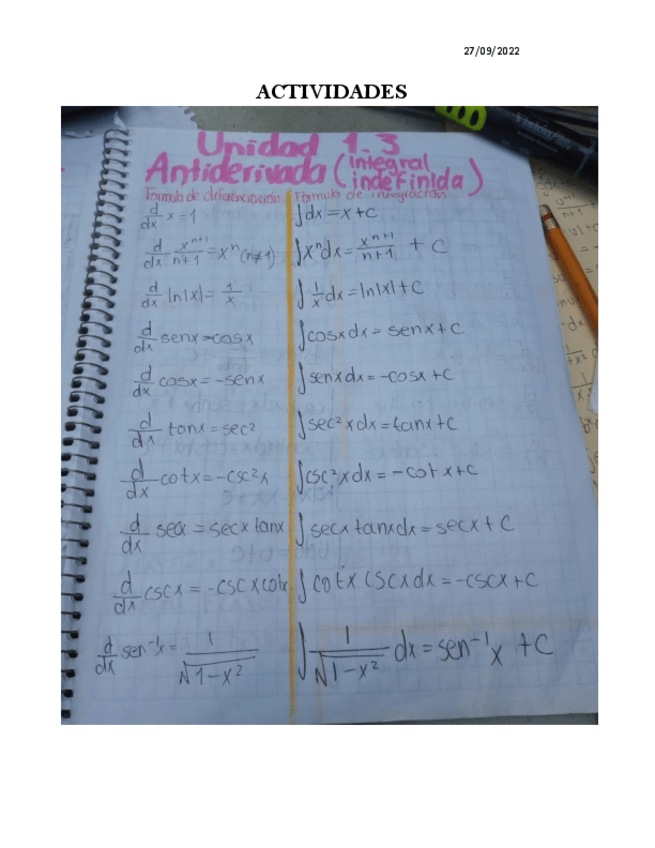 27/09/2022
ACTIVIDADES
Unidad 1.3
Antiderivada (integral indefinida)
Formula de diferenciación Formula de integración
d/dx x = 1 ∫dx = x + C
d/dx xⁿ⁺¹/n+1 = xⁿ (n≠1) ∫xⁿdx = xⁿ⁺¹/n+1 + C
d/dx ln|x| = 1/x ∫1/x dx = ln|x| + C
d/dx senx = cosx ∫cosx dx = senx + C
d/dx cosx = -senx ∫senx dx = -cosx + C
d/dx tanx = sec² ∫sec²x dx = tanx + C
d/dx cotx = -csc²x ∫csc²x dx = -cotx + C
d/dx secx = secx tanx ∫secx tanx dx = secx + C
d/dx cscx = -cscx cotx ∫cotx cscx dx = -cscx + C
d/dx sen⁻¹x = 1/√1-x² ∫1/√1-x² dx = sen⁻¹x + C